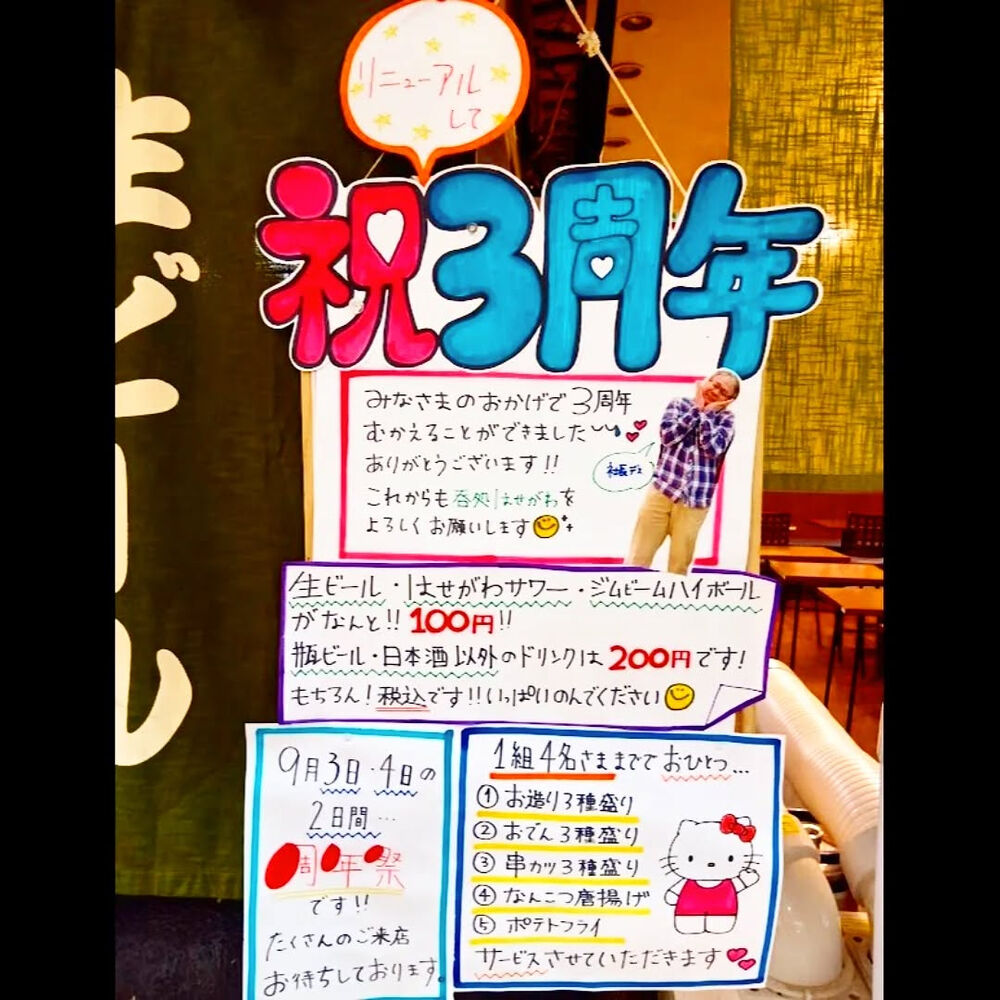 リニューアル
して
祝3周年
みなさまのおかげで3周年
むかえることができました
ありがとうございます!!
これからも呑処はせがわを
よろしくお願いします
社長デス
生ビール・はせがわサワー・ジムビームハイボール
がなんと!! 100円!!
瓶ビール・日本酒以外のドリンクは 200円です!
もちろん!税込です!!いっぱいのんでください
9月3日・4日の
2日間…
周年祭
です!!
たくさんのご来店
お待ちしております。
1組4名さままででおひとつ…
① お造り3種盛り
② おでん3種盛り
③ 串カツ3種盛り
④ なんこつ唐揚げ
⑤ ポテトフライ
サービスさせていただきます
生ビール